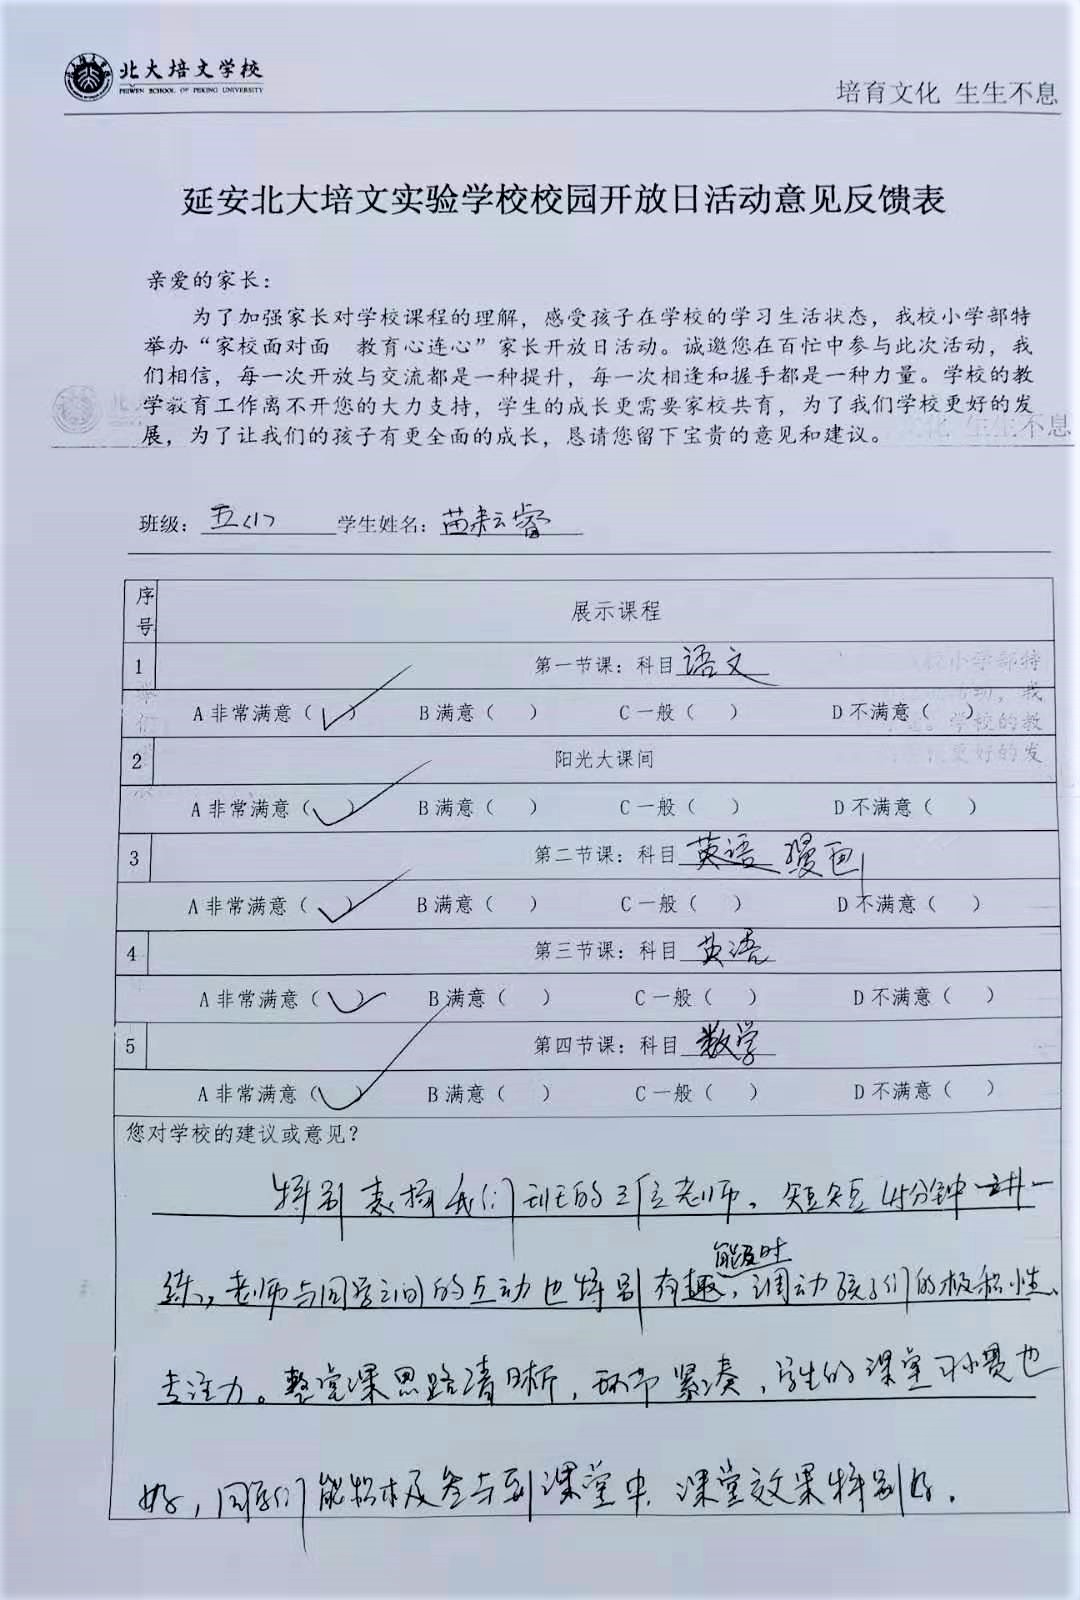 北大培文学校
PEIWEN SCHOOL OF PEKING UNIVERSITY
培育文化 生生不息
延安北大培文实验学校校园开放日活动意见反馈表
亲爱的家长：
为了加强家长对学校课程的理解，感受孩子在学校的学习生活状态，我校小学部特
举办“家校面对面 教育心连心”家长开放日活动。诚邀您在百忙中参与此次活动，我
们相信，每一次开放与交流都是一种提升，每一次相逢和握手都是一种力量。学校的教
学教育工作离不开您的大力支持，学生的成长更需要家校共育，为了我们学校更好的发
展，为了让我们的孩子有更全面的成长，恳请您留下宝贵的意见和建议。
班级：五(1) 学生姓名：苗耘睿
序号 展示课程
1 第一节课：科目 语文
A 非常满意（✓） B 满意（ ） C 一般（ ） D 不满意（ ）
2 阳光大课间
A 非常满意（✓） B 满意（ ） C 一般（ ） D 不满意（ ）
3 第二节课：科目 英语
A 非常满意（✓） B 满意（ ） C 一般（ ） D 不满意（ ）
4 第三节课：科目 英语
A 非常满意（✓） B 满意（ ） C 一般（ ） D 不满意（ ）
5 第四节课：科目 数学
A 非常满意（✓） B 满意（ ） C 一般（ ） D 不满意（ ）
您对学校的建议或意见？
特别表扬我们班的三位老师。短短45分钟一讲一
练，老师与同学之间的互动也特别有趣，能及时调动孩子们的极积性、
专注力。整堂课思路清晰，环节紧凑，学生的课堂习惯也
好，同学们能积极参与到课堂中，课堂效果特别好。